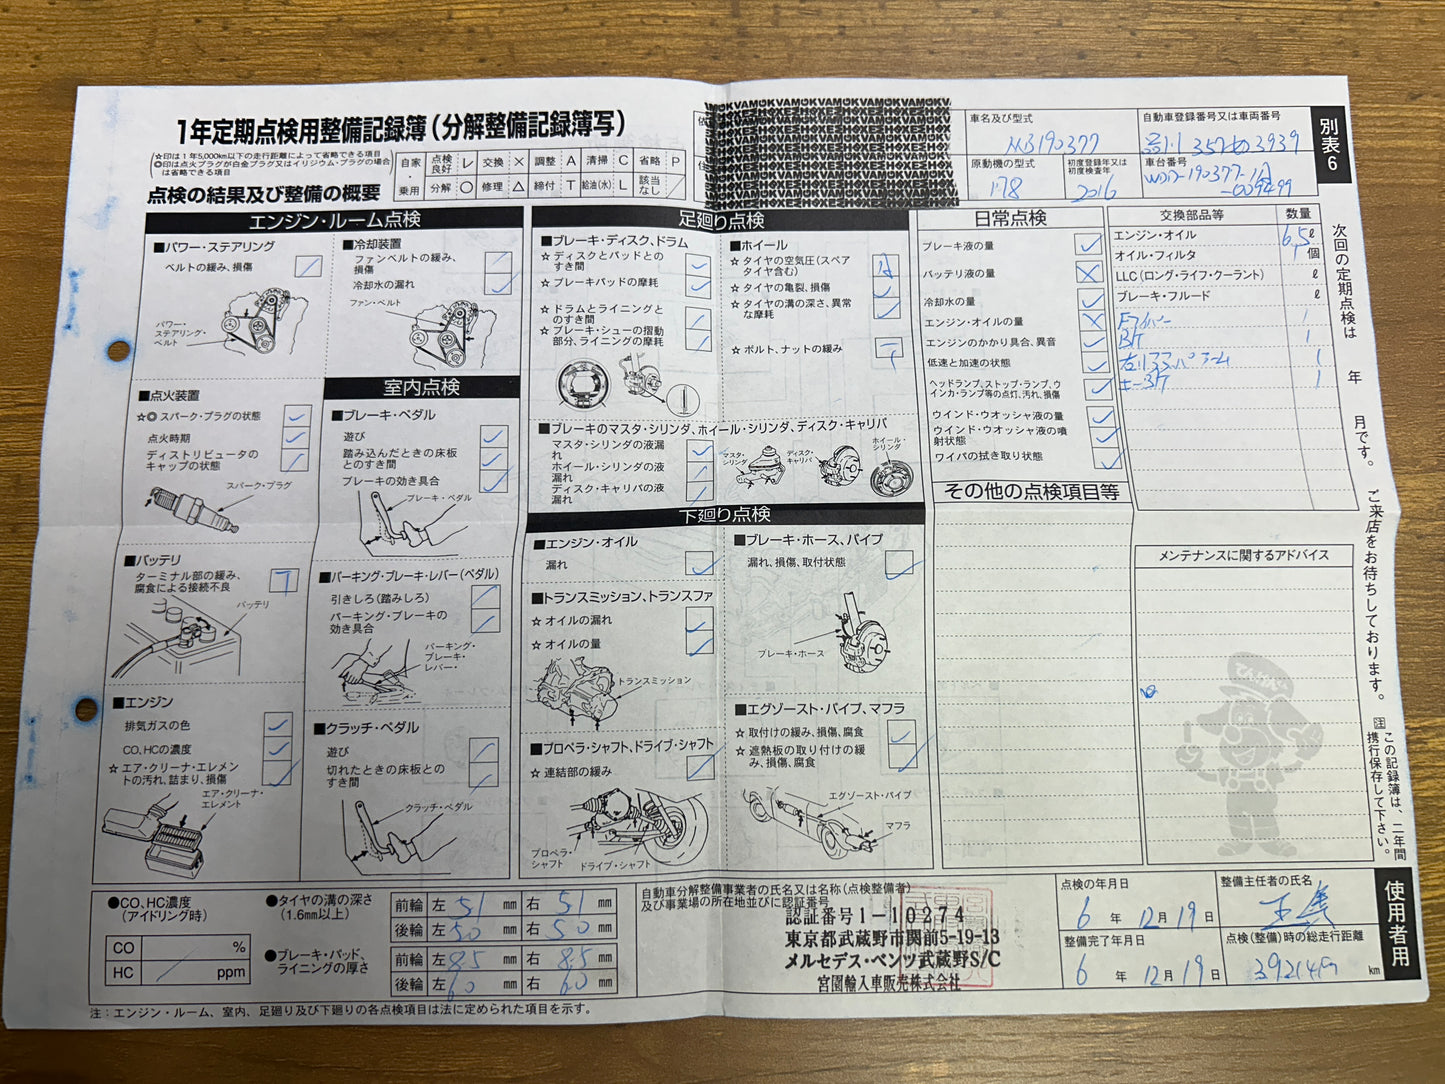 1年定期点検用整備記録簿(分解整備記録簿写)
☆印は1年5,000km以下の走行距離によって省略できる項目
◎印は点火プラグが白金プラグ又はイリジウム・プラグの場合
は省略できる項目
点検の結果及び整備の概要
自家・乗用
点検良好 レ 交換 × 調整 A 清掃 C 省略 P
分解 ○ 修理 △ 締付 T 給油(水) L 該当なし /
車名及び型式
MB190377
自動車登録番号又は車両番号
原動機の型式
178
初度登録年又は
初度検査年
2016
車台番号
別表6
エンジン・ルーム点検
■パワー・ステアリング
ベルトの緩み、損傷
パワー・
ステアリング・
ベルト
■冷却装置
ファンベルトの緩み、
損傷
冷却水の漏れ
ファン・ベルト
■点火装置
☆◎ スパーク・プラグの状態
点火時期
ディストリビュータの
キャップの状態
スパーク・プラグ
■バッテリ
ターミナル部の緩み、
腐食による接続不良
T
バッテリ
■エンジン
排気ガスの色
CO、HCの濃度
☆ エア・クリーナ・エレメン
トの汚れ、詰まり、損傷
エア・クリーナ・
エレメント
室内点検
■ブレーキ・ペダル
遊び
踏み込んだときの床板
とのすき間
ブレーキの効き具合
ブレーキ・ペダル
■パーキング・ブレーキ・レバー(ペダル)
引きしろ(踏みしろ)
パーキング・ブレーキの
効き具合
パーキング・
ブレーキ・
レバー・
■クラッチ・ペダル
遊び
切れたときの床板との
すき間
クラッチ・ペダル
足廻り点検
■ブレーキ・ディスク、ドラム
☆ ディスクとパッドとの
すき間
☆ ブレーキパッドの摩耗
☆ ドラムとライニングと
のすき間
☆ ブレーキ・シューの摺動
部分、ライニングの摩耗
■ホイール
☆ タイヤの空気圧(スペア
タイヤ含む)
☆ タイヤの亀裂、損傷
☆ タイヤの溝の深さ、異常
な摩耗
☆ ボルト、ナットの緩み
T
■ブレーキのマスタ・シリンダ、ホイール・シリンダ、ディスク・キャリパ
マスタ・シリンダの液漏
れ
ホイール・シリンダの液
漏れ
ディスク・キャリパの液
漏れ
マスタ・
シリンダ
ディスク・
キャリパ
ホイール・
シリンダ
下廻り点検
■エンジン・オイル
漏れ
■トランスミッション、トランスファ
☆ オイルの漏れ
☆ オイルの量
トランスミッション
■プロペラ・シャフト、ドライブ・シャフト
☆ 連結部の緩み
プロペラ・
シャフト
ドライブ・シャフト
■ブレーキ・ホース、パイプ
漏れ、損傷、取付状態
ブレーキ・ホース
■エグゾースト・パイプ、マフラ
☆ 取付けの緩み、損傷、腐食
☆ 遮熱板の取り付けの緩
み、損傷、腐食
エグゾースト・パイプ
マフラ
日常点検
ブレーキ液の量
バッテリ液の量
冷却水の量
エンジン・オイルの量
エンジンのかかり具合、異音
低速と加速の状態
ヘッドランプ、ストップ・ランプ、ウ
インカ・ランプ等の点灯、汚れ、損傷
ウインド・ウオッシャ液の量
ウインド・ウオッシャ液の噴
射状態
ワイパの拭き取り状態
その他の点検項目等
交換部品等 数量
エンジン・オイル 6.5 ℓ
オイル・フィルタ 1 個
LLC(ロング・ライフ・クーラント) ℓ
ブレーキ・フルード ℓ
Fワイパー 1
1
1
1
メンテナンスに関するアドバイス
てんけんくん
次回の定期点検は 年 月です。 ご来店をお待ちしております。
注 この記録簿は、二年間
携行保存して下さい。
●CO、HC濃度
(アイドリング時)
CO %
HC / ppm
●タイヤの溝の深さ
(1.6mm以上)
前輪 左 5.1 mm 右 5.1 mm
後輪 左 5.0 mm 右 5.0 mm
●ブレーキ・パッド、
ライニングの厚さ
前輪 左 8.5 mm 右 8.5 mm
後輪 左 6.0 mm 右 6.0 mm
自動車分解整備事業者の氏名又は名称(点検整備者)
及び事業場の所在地並びに認証番号
認証番号1-10274
東京都武蔵野市関前5-19-13
メルセデス・ベンツ武蔵野S/C
宮園輸入車販売株式会社
点検の年月日
6 年 12月 19日
整備主任者の氏名
整備完了年月日
6 年 12月 19日
点検(整備)時の総走行距離
km
使用者用
注:エンジン・ルーム、室内、足廻り及び下廻りの各点検項目は法に定められた項目を示す。